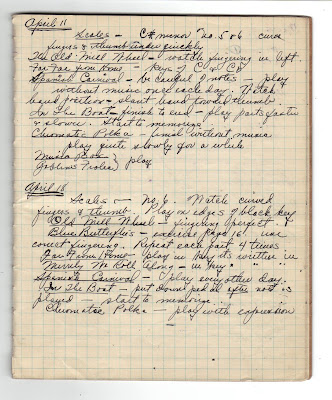 April 11
Scales - C# minor no. 5 & 6 curve
fingers & thumb under quickly
The Old Mill Wheel - watch fingering in left.
Far Far from Home - Keys of C & G
Spanish Carnival - be careful of notes - play
without music once each day. Watch
hand position - slant hand toward thumb
In The Boat - finish to end - play parts faster
& slower. Start to memorize
Chromatic Polka - finish without music
play quite slowly for a while
Music Box
Goblins Frolic } play
April 18
Scales - no 6. Watch curved
fingers & thumb. Play on edge of black key
Old Mill Wheel - fingering perfect
Blue Butterflies - exercise page 16 use
correct fingering. Repeat each part 4 times
Far Far from Home - play in key its written in
Merrily We Roll Along - in key " "
Spanish Carnival - play every other day.
In The Boat - put down pedal after note is
played - start to memorize.
Chromatic Polka - play with expression